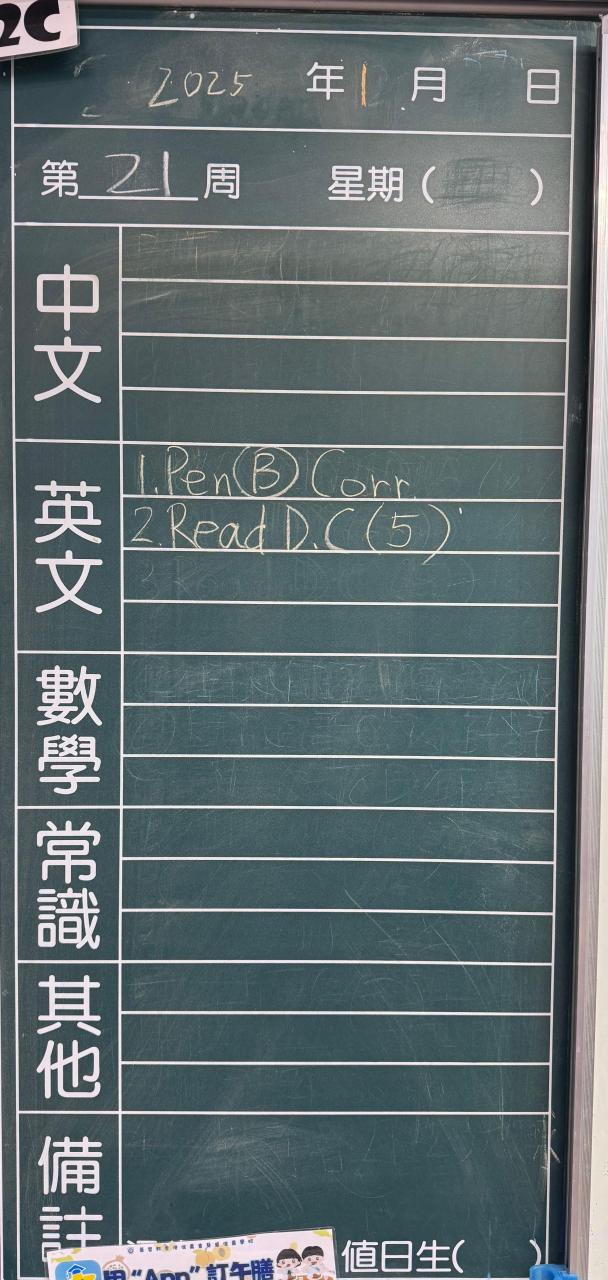 2C
2025 年 1 月 日
第 21 周 星期( )
中文
英文
1. Pen Ⓑ Corr.
2. Read D.C (5)
數學
常識
其他
備註
值日生( )
用“App”訂午膳